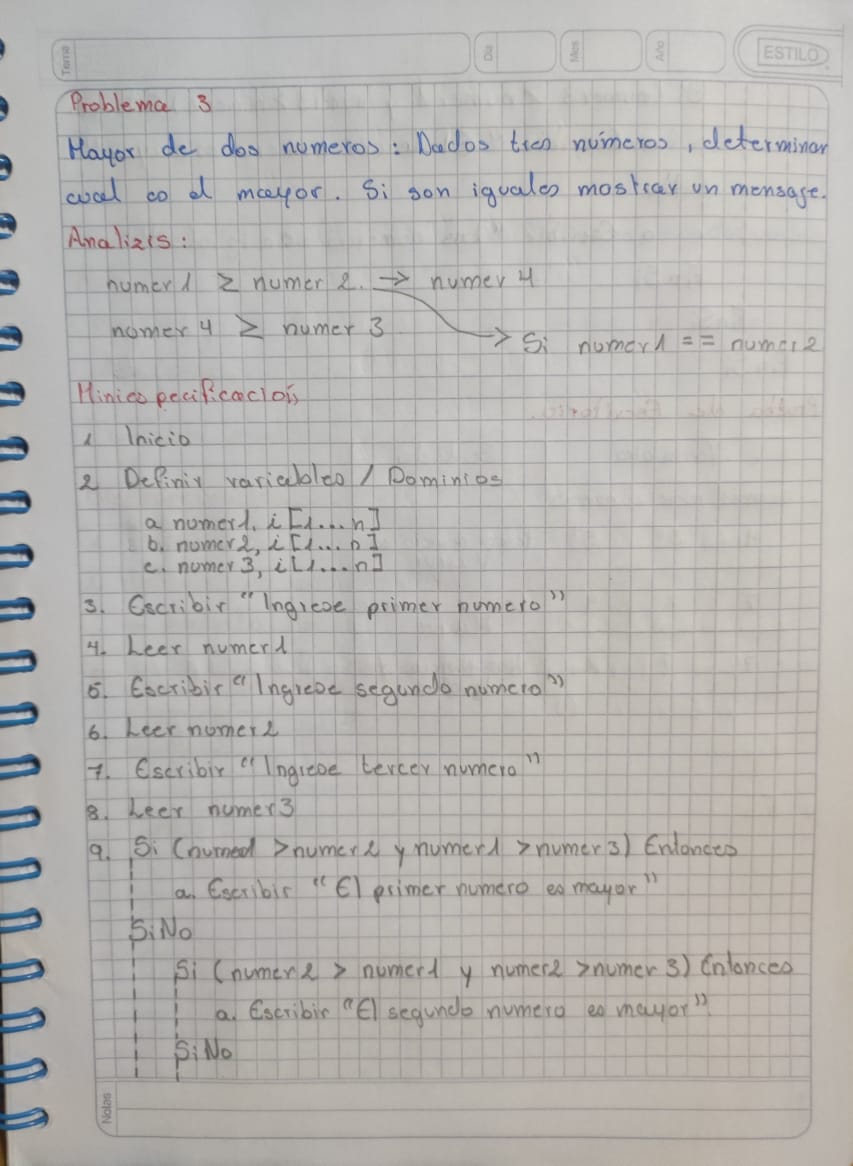 Tema
Dia
Mes
Año
ESTILO
Problema 3
Mayor de dos numeros: Dados tres números, determinar
cual es el mayor. Si son iguales mostrar un mensage.
Analizis:
numer1 ≥ numer2. → numer4
numer4 ≥ numer3
→ Si numer1 == numer2
Miniespecificacion
1 Inicio
2 Definir variables / Dominios
a numer1, i [1...n]
b. numer2, i [1...n]
c. numer3, i [1...n]
3. Escribir "Ingrese primer numero"
4. Leer numer1
5. Escribir "Ingrese segundo numero"
6. Leer numer2
7. Escribir "Ingrese tercer numero"
8. Leer numer3
9. Si (numer1 > numer2 y numer1 > numer3) Entonces
a. Escribir "El primer numero es mayor"
SiNo
Si (numer2 > numer1 y numer2 > numer3) Entonces
a. Escribir "El segundo numero es mayor"
SiNo
Notas